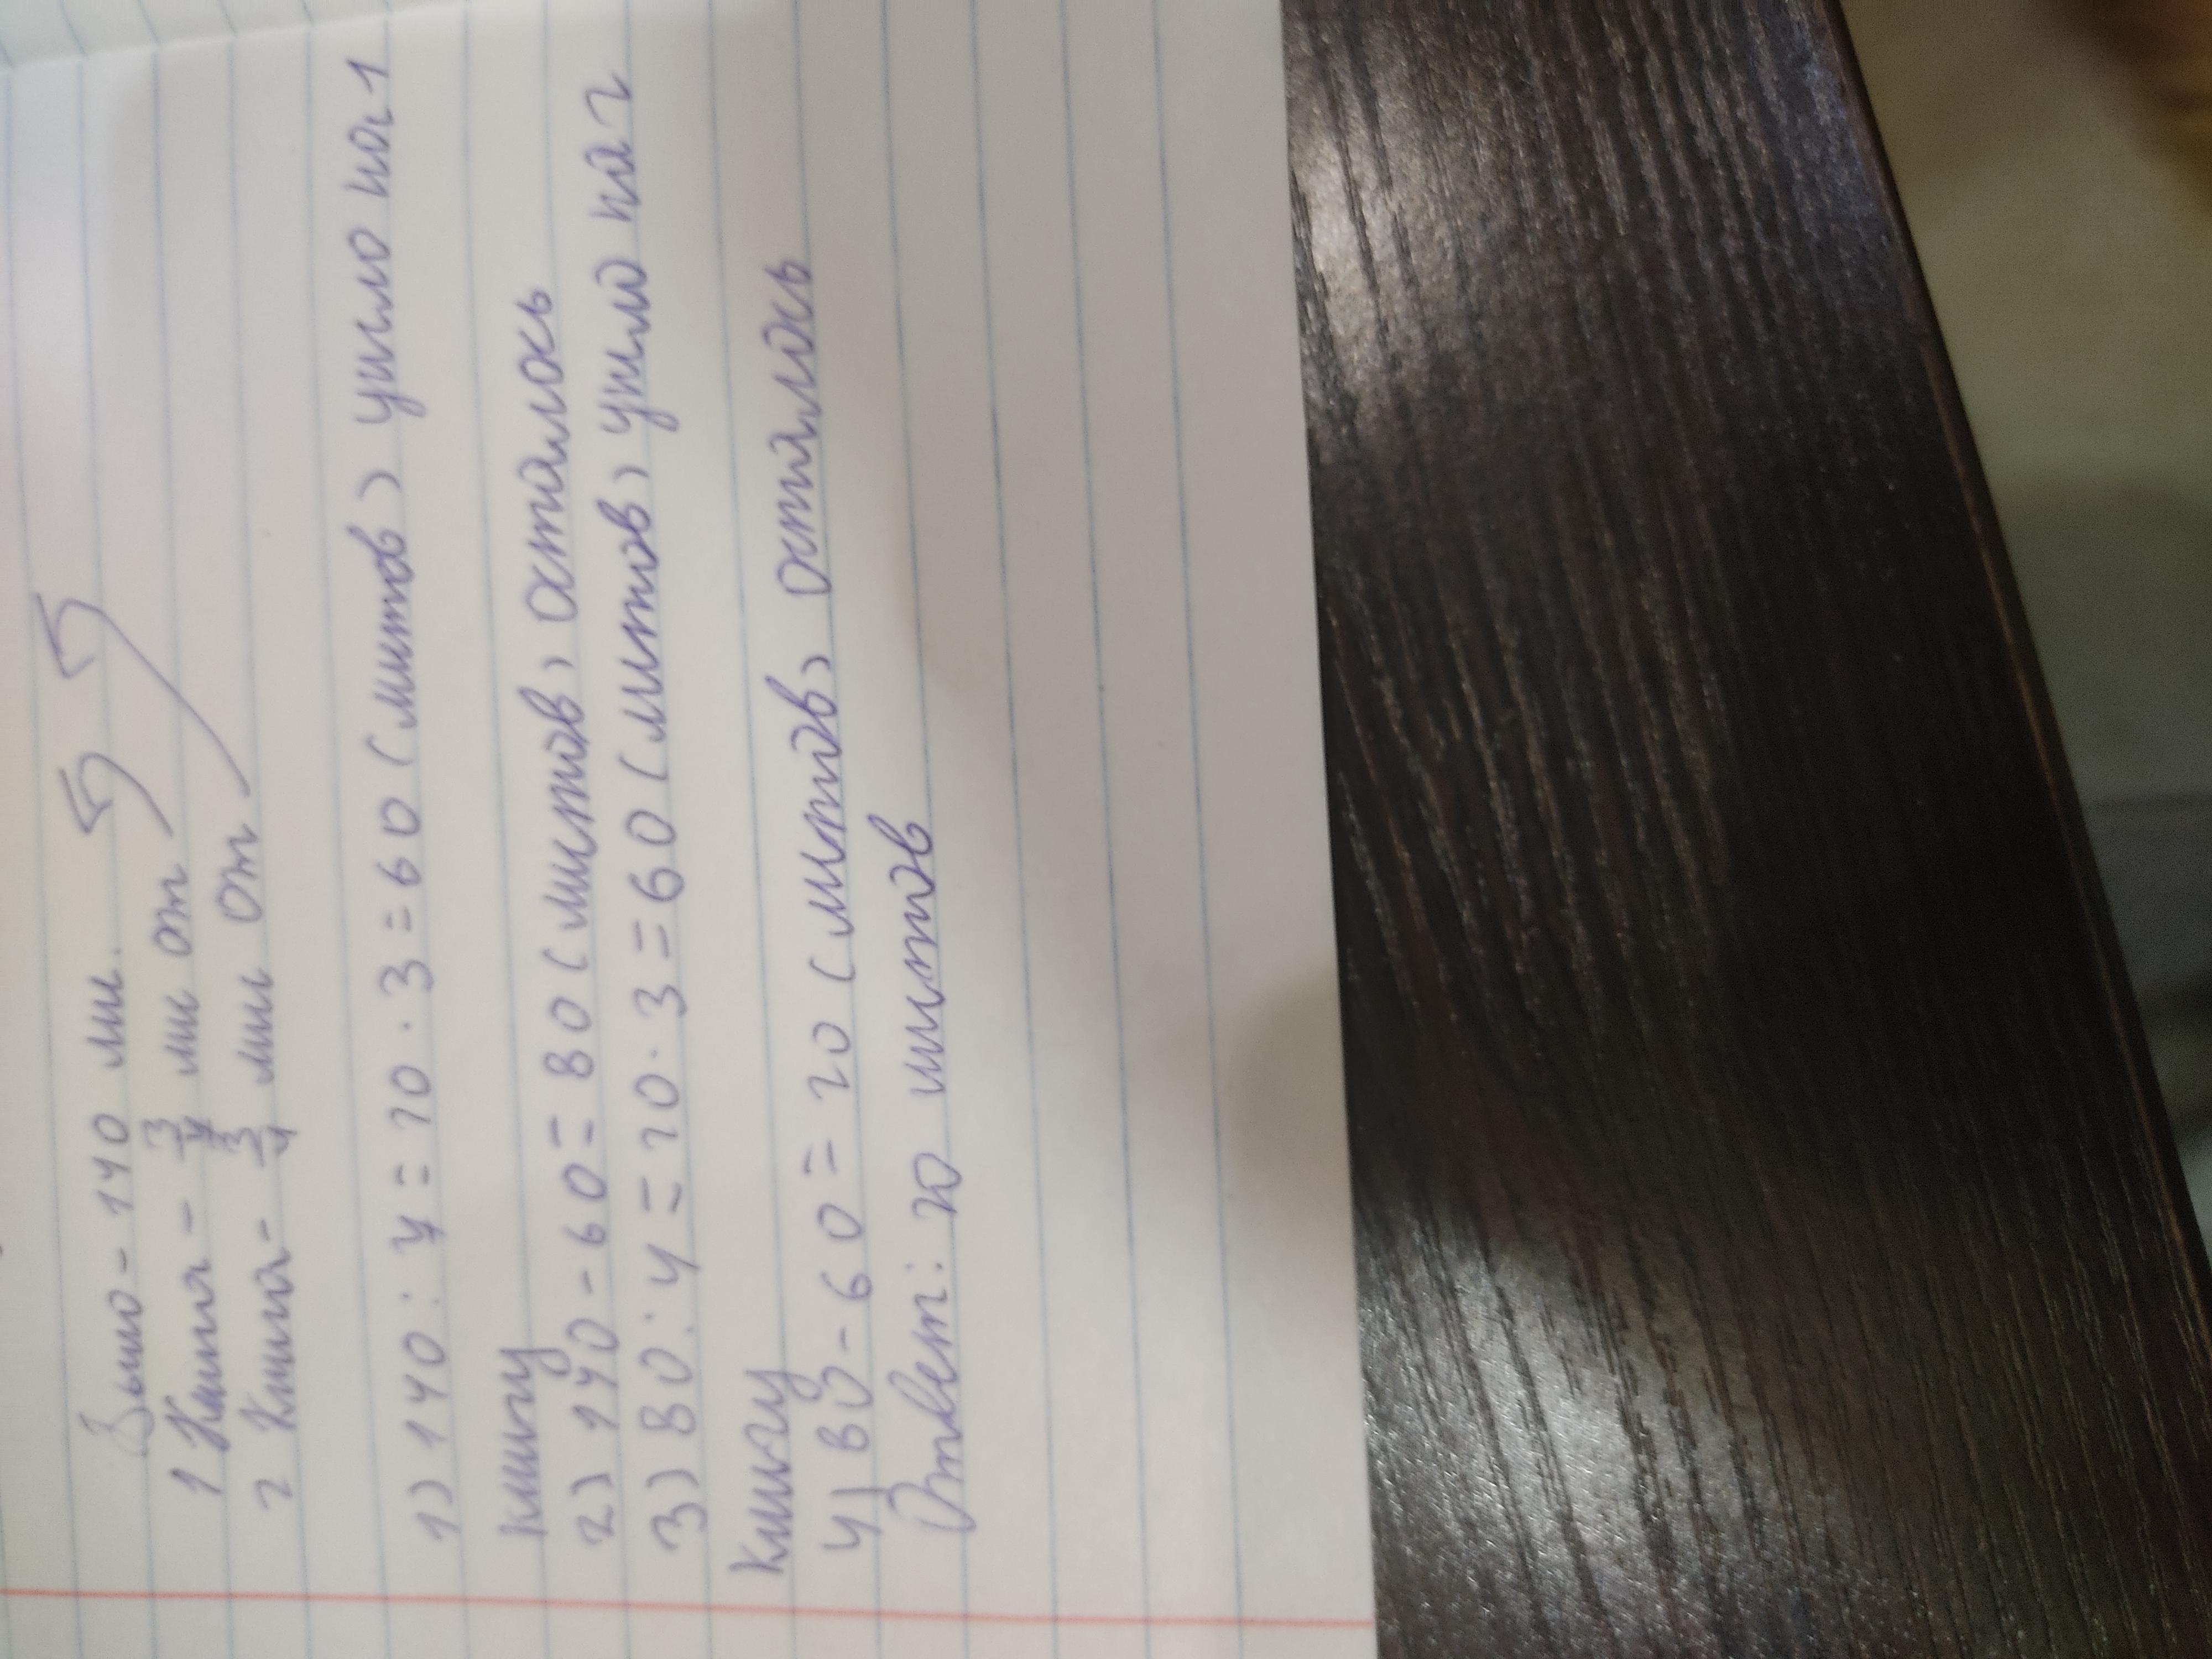 Было - 140 лис.
1 Книга - 3/4 лис от
2 Книга - 3/4 лис от
1) 140 : 4 = 20 · 3 = 60 (листов) ушло на 1
книгу
2) 140 - 60 = 80 (листов) осталось
3) 80 : 4 = 20 · 3 = 60 (листов) ушло на 2
книгу
4) 80 - 60 = 20 (листов) осталось
Ответ: 20 листов